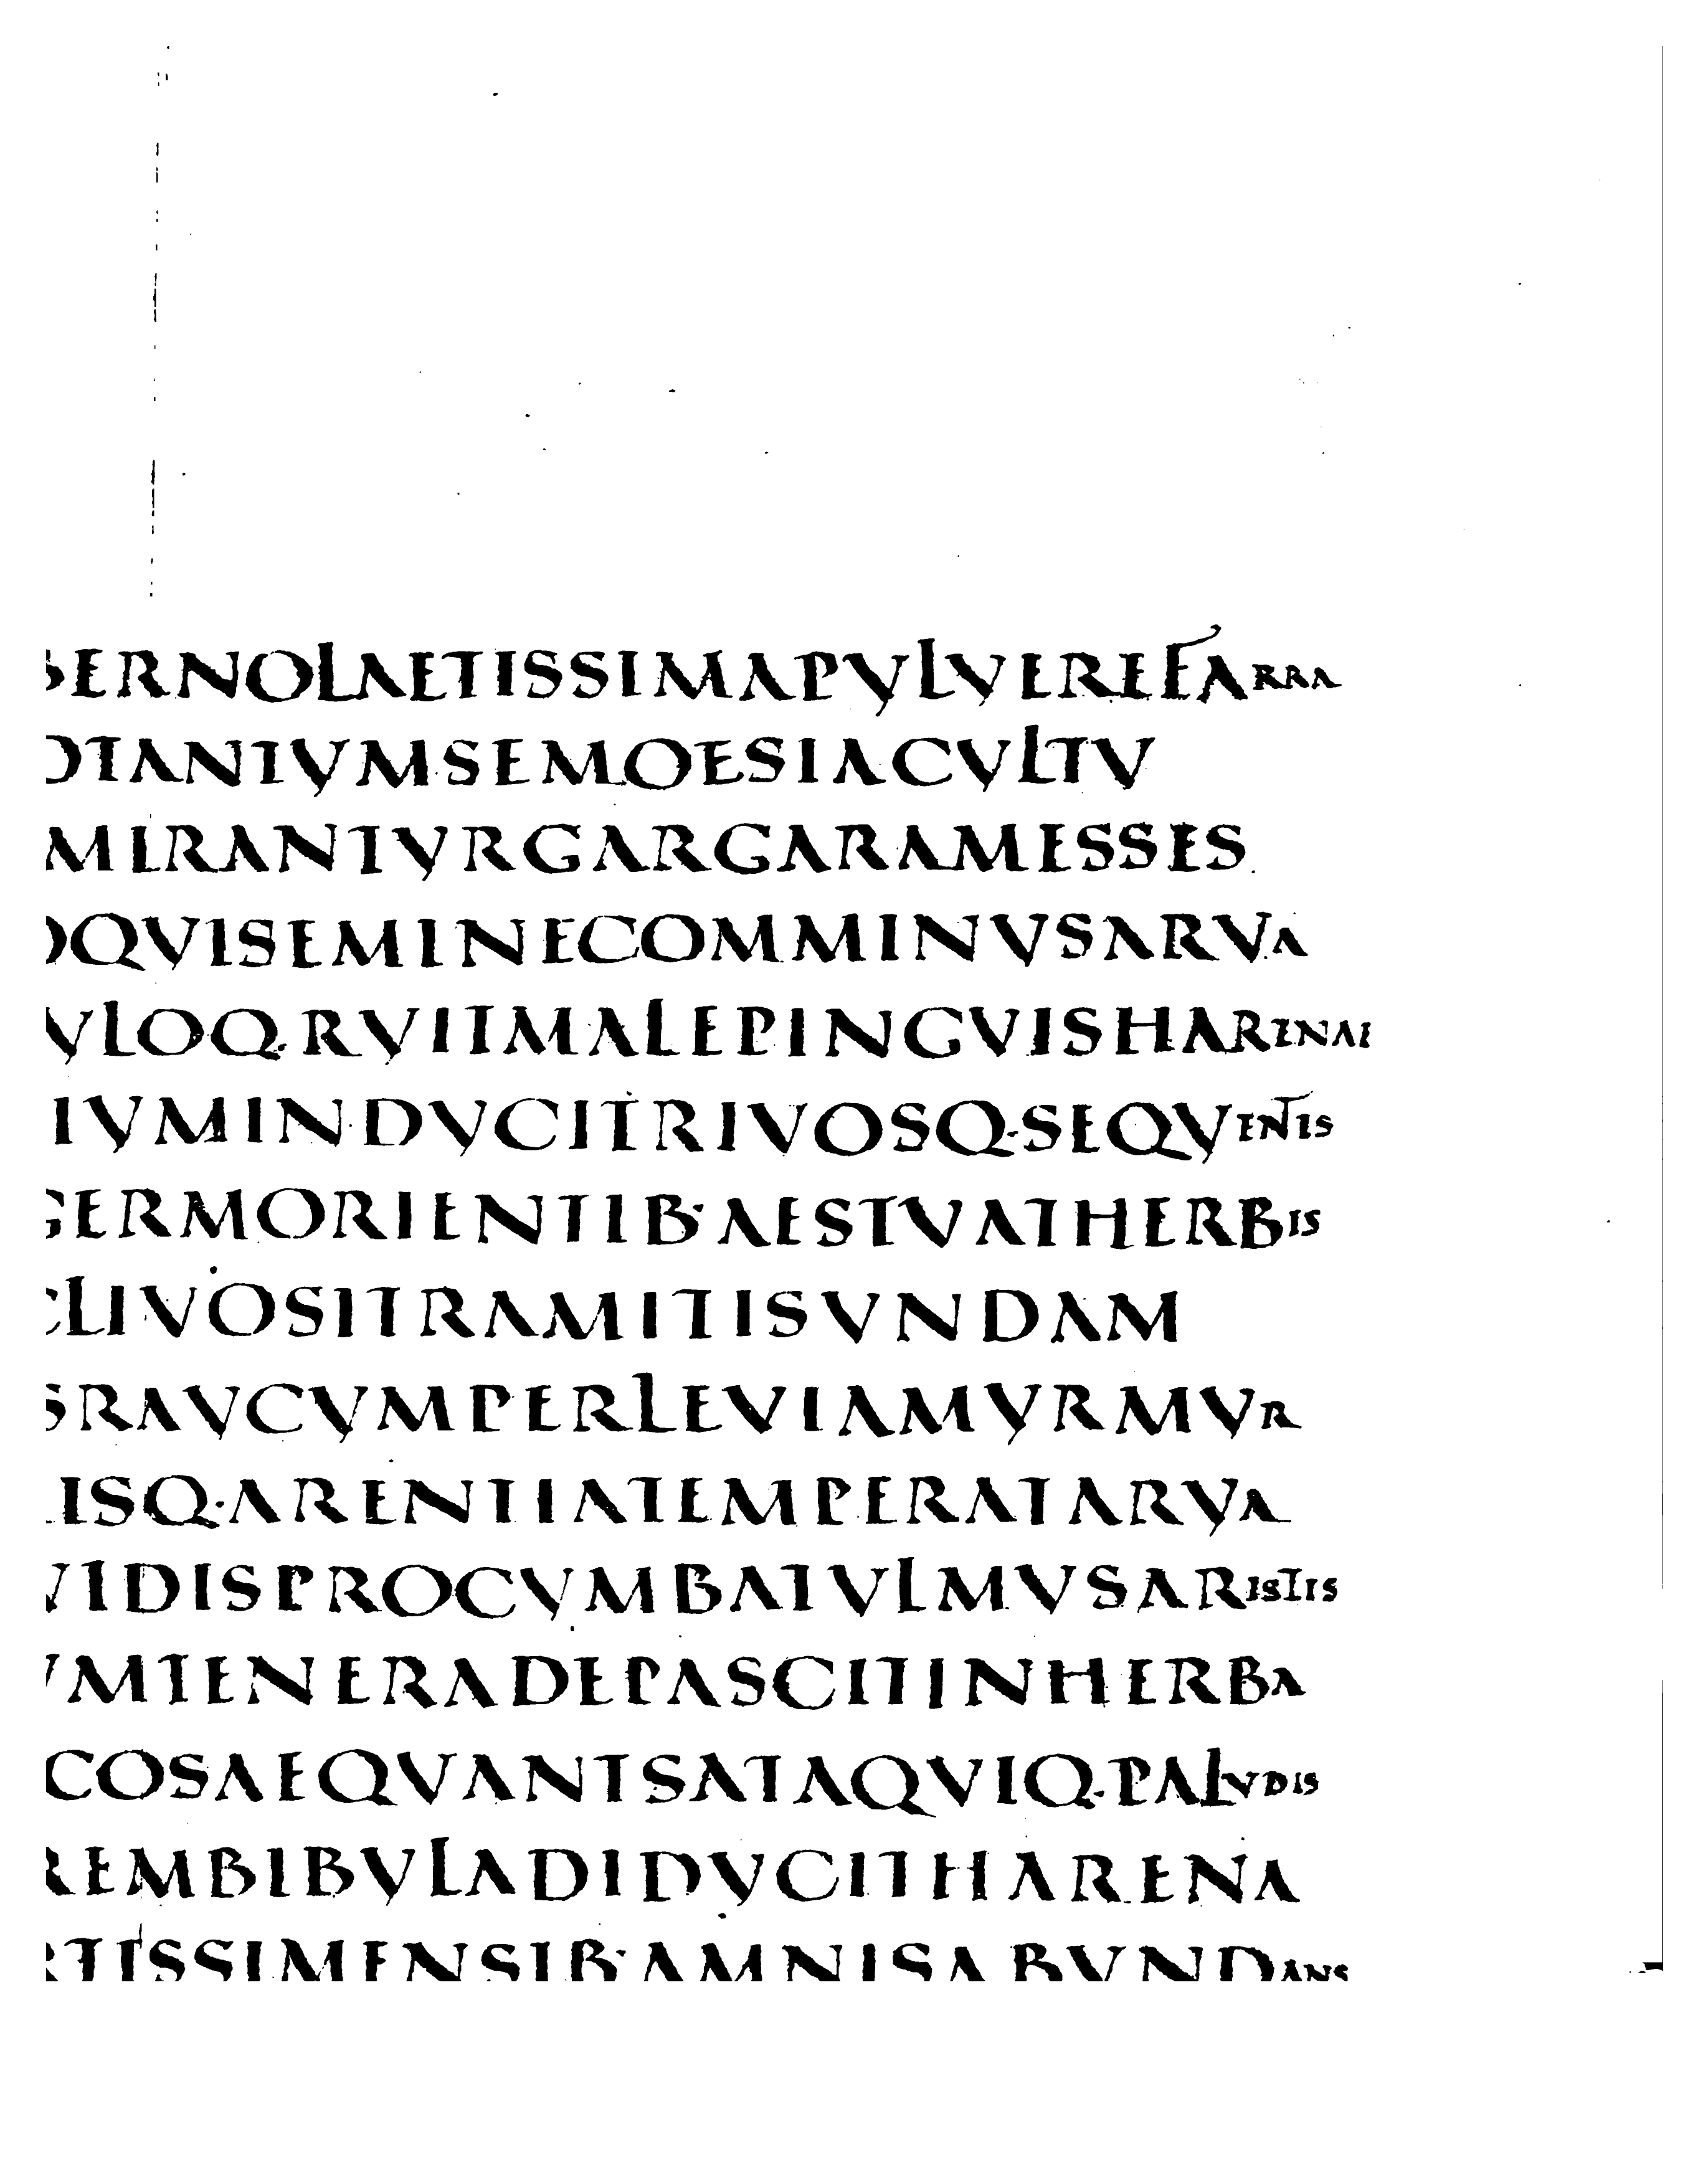 BERNOLAETISSIMAPVLVEREFARRA
OTANTVMSEMOESIACVLTV
MIRANTVRGARGARAMESSES
OQVISEMINECOMMINVSARVA
VLOQ·RVITMALEPINGVISHARENAE
IVMINDVCITRIVOSQ·SEQVENTIS
GERMORIENTIB·AESTVATHERBIS
CLIVOSITRAMITISVNDAM
SRAVCVMPERLEVIAMVRMVR
ISQ·ARENTIATEMPERATARVA
VIDISPROCVMBATVLMVSARISTIS
VMTENERADEPASCITINHERBA
COSAEQVANTSATAQVIQ·PALVDIS
REMBIBVLADIDVCITHARENA
RTISSIMENSIB·AMNISABVNDANS